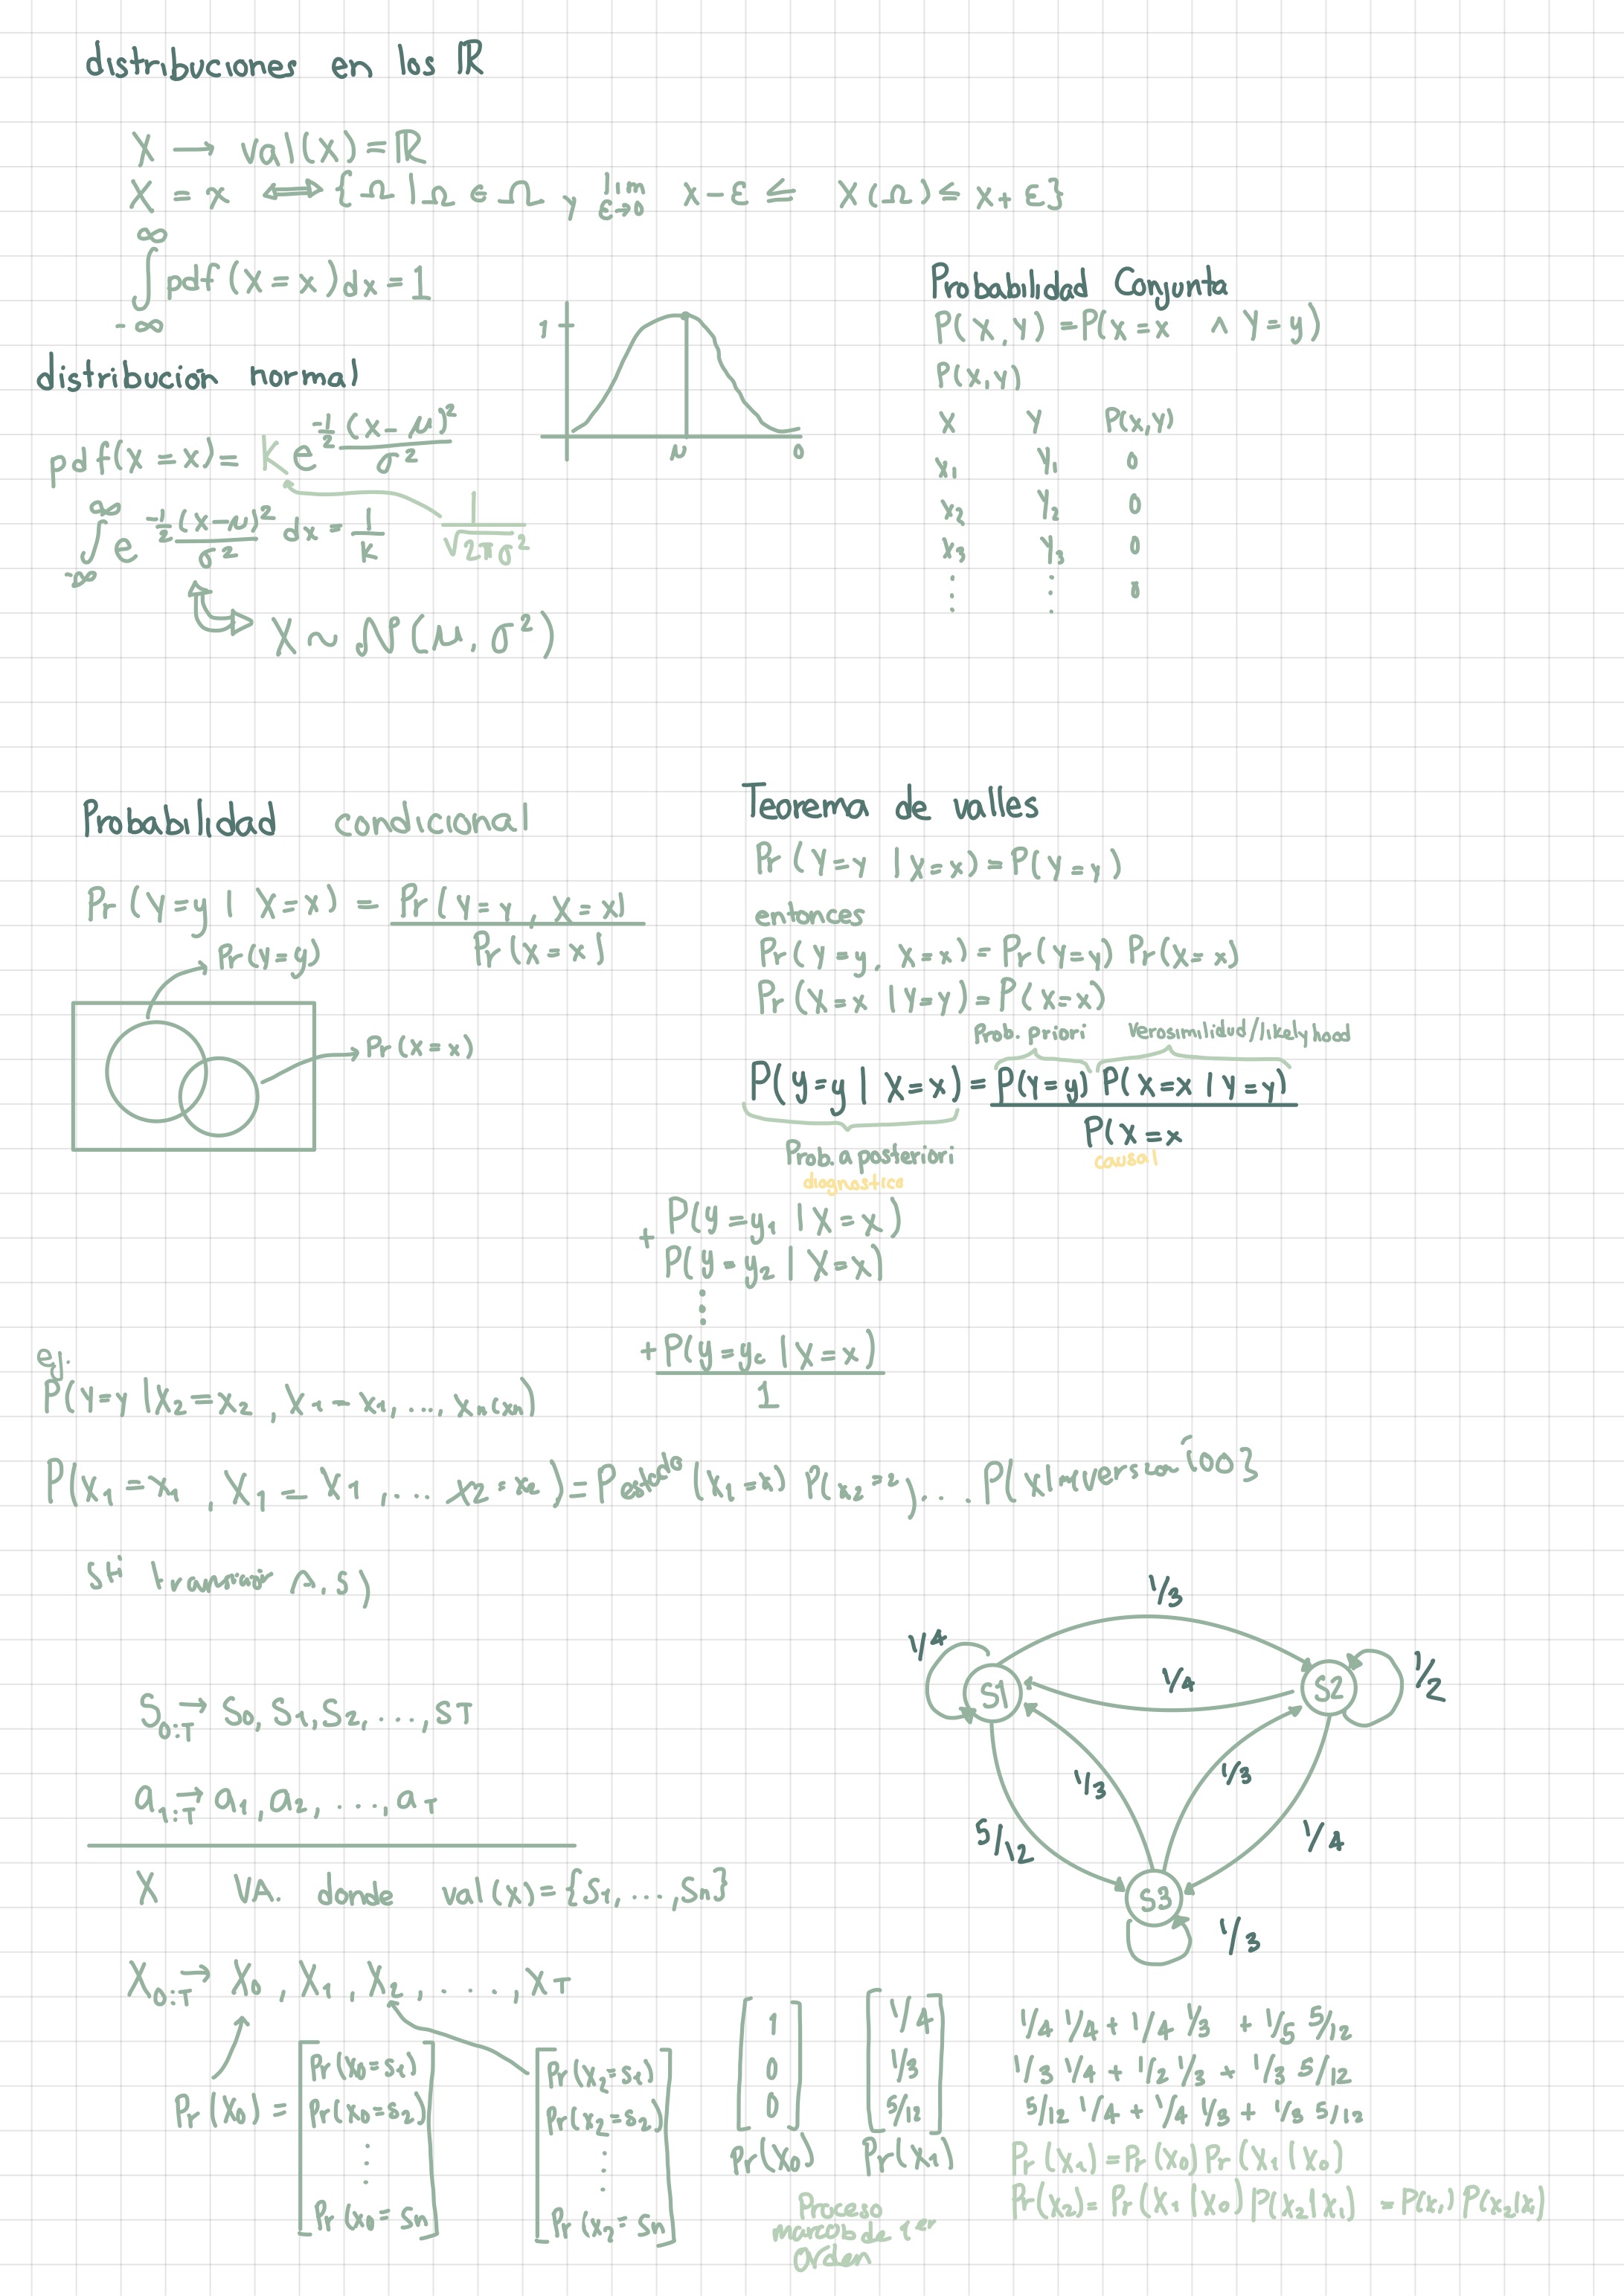 distribuciones en los ℝ
X → val(x) = ℝ
X = x ⟺ { Ω | Ω ∈ Ω y lim ε→0 x - ε ≤ X(Ω) ≤ x + ε}
∫_{-∞}^{∞} pdf(X = x) dx = 1
distribucion normal
pdf(X = x) = K e^{-1/2 (x-μ)²/σ²}
∫_{-∞}^{∞} e^{-1/2 (x-μ)²/σ²} dx = 1/K
1/√2πσ²
X ~ N(μ, σ²)
1
μ
0
Probabilidad Conjunta
P(X,Y) = P(X = x ∧ Y = y)
P(x,y)
X Y P(x,y)
x₁ y₁ 0
x₂ y₂ 0
x₃ y₃ 0
⋮ ⋮ 0
Probabilidad condicional
Pr(Y=y | X=x) = Pr(Y=y, X=x) / Pr(X=x)
Pr(Y=y)
Pr(X=x)
Teorema de valles
Pr(Y=y | X=x) = P(Y=y)
entonces
Pr(Y=y, X=x) = Pr(Y=y) Pr(X=x)
Pr(X=x | Y=y) = P(X=x)
Prob. priori Verosimilidud/likelyhood
P(y=y | X=x) = P(Y=y) P(X=x | Y=y) / P(X=x
Prob. a posteriori
diagnostica
causal
+ P(y=y₁ | X=x)
P(y=y₂ | X=x)
⋮
+ P(y=yc | X=x)
1
ej.
P(Y=y | X₂=x₂, X₁=x₁, ..., Xn(xn)
P(x₁=x₁, X₁=X₁, ... x₂=x₂) = P estado (x₁=x) P(x₂=2) ... P(x|inversion
S_{0:T} → S₀, S₁, S₂, ..., S_T
a_{1:T} → a₁, a₂, ..., a_T
X VA. donde val(x) = {S₁, ..., Sn}
X_{0:T} → X₀, X₁, X₂, ..., X_T
Pr(X₀) =
Pr(X₀=s₁)
Pr(X₀=s₂)
⋮
Pr(X₀=Sn)
Pr(X₂=s₁)
Pr(X₂=s₂)
⋮
Pr(X₂=Sn)
1/3
1/4
S1
1/4
S2
1/2
1/3
1/3
5/12
1/4
S3
1/3
1
0
0
Pr(X₀)
1/4
1/3
5/12
Pr(X₁)
Proceso
marcob de 1er
orden
1/4 1/4 + 1/4 1/3 + 1/5 5/12
1/3 1/4 + 1/2 1/3 + 1/3 5/12
5/12 1/4 + 1/4 1/3 + 1/3 5/12
Pr(X₁) = Pr(X₀) Pr(X₁|X₀)
Pr(X₂) = Pr(X₁|X₀) P(X₂|X₁) = P(X₁) P(X₂|X₁)